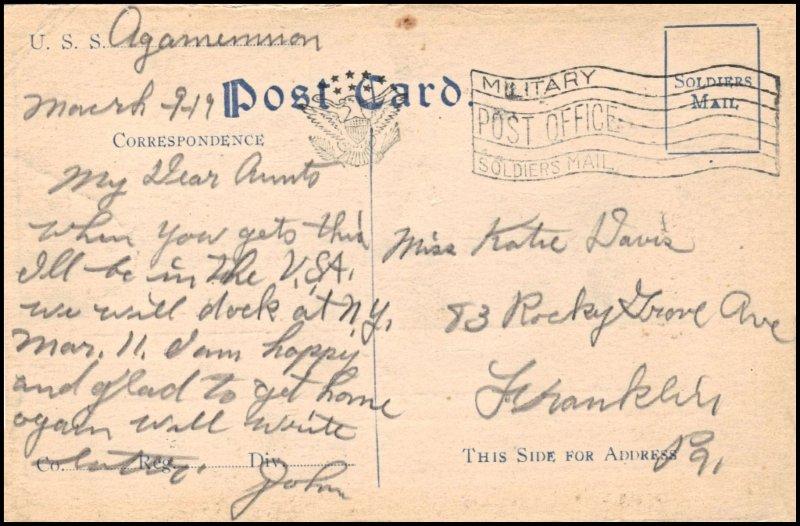 U. S. S. Agamemnon
March-9-19
Post Card.
CORRESPONDENCE
My Dear Aunts
when you gets this
I'll be in the U.S.A.
we will dock at N.Y.
Mar. 11. I am happy
and glad to get home
again will write
Co. later. Reg. Div.
John
MILITARY
POST OFFICE
SOLDIERS MAIL
SOLDIERS
MAIL
Miss Katie Davis
83 Rocky Grove Ave
Franklin
THIS SIDE FOR ADDRESS
Pa.